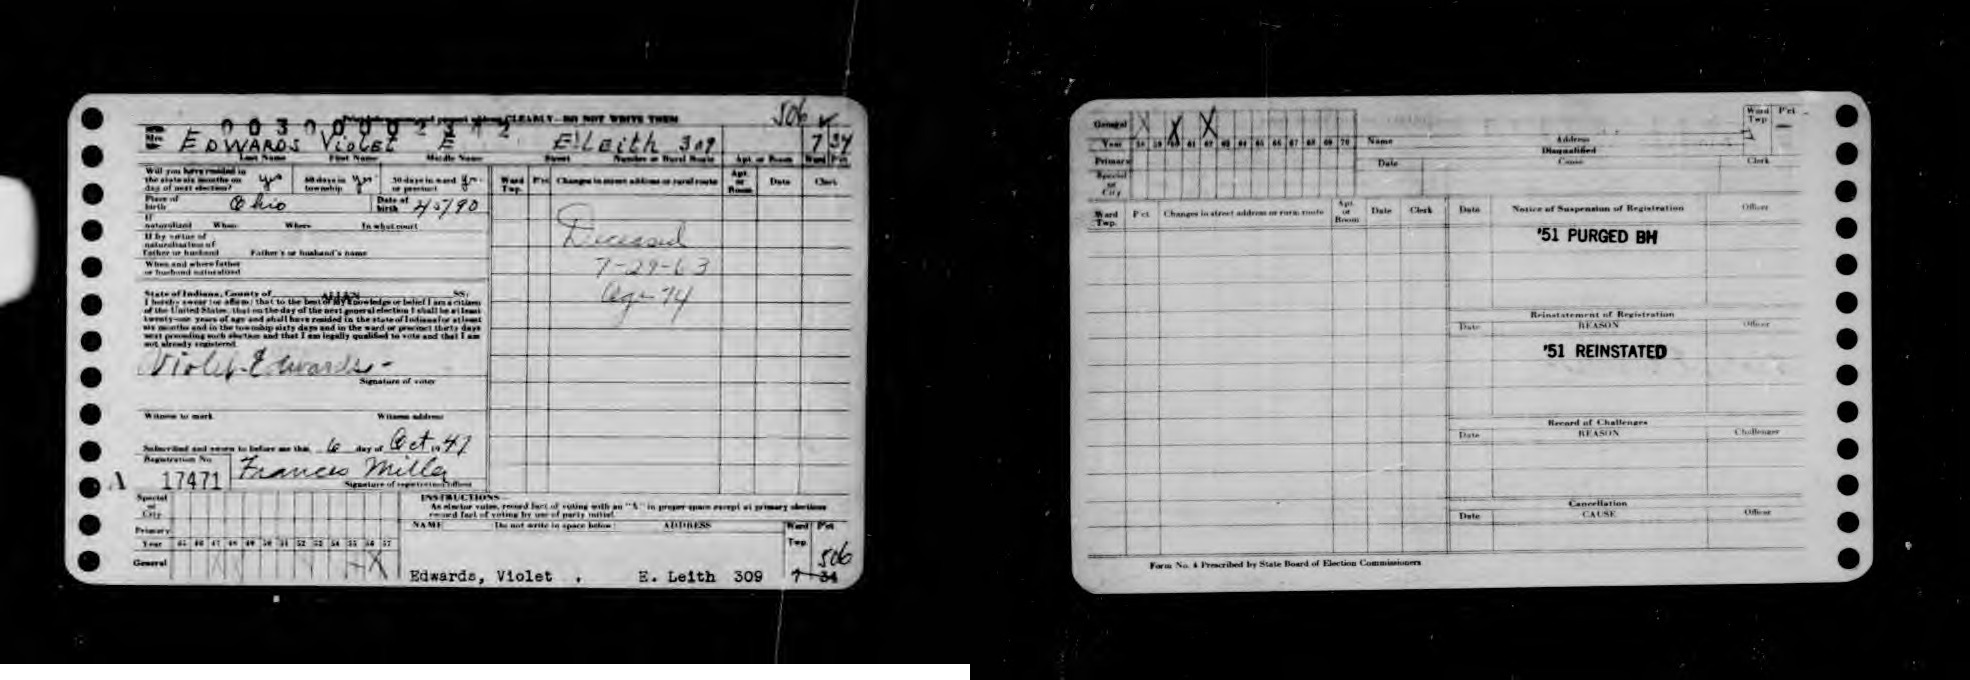 506 ✓
CLEARLY—DO NOT WRITE THEM
0030000
EDWARDS Violet E E. Leith 309 7 34
Last Name First Name Middle Name Street Number or Rural Route Apt. or Room Ward P'ct.
Will you have resided in
the state six months on
day of next election? yes 60 days in township yes 30 days in ward or precinct
Ward Twp. P'ct Changes in street address or rural route Apt. or Room Date Clerk
Place of birth Ohio Date of birth
If
naturalized When Where In what court
If by virtue of
naturalization of
Father or husband Father's or husband's name
When and where father
or husband naturalized
Deceased
7-29-63
age 74
State of Indiana, County of ALLEN SS:
I hereby swear (or affirm) that to the best of my knowledge or belief I am a citizen
of the United States, that on the day of the next general election I shall be at least
twenty-one years of age and shall have resided in the state of Indiana for at least
six months and in the township sixty days and in the ward or precinct thirty days
next preceding such election and that I am legally qualified to vote and that I am
not already registered.
Violet Edwards
Signature of voter
Witness to mark Witness address
Subscribed and sworn to before me this 6 day of Oct 19 47
Registration No. Frances Miller
A 17471 Signature of registration officer
INSTRUCTIONS—
As elector votes, record fact of voting with an "X" in proper space except at primary elections
record fact of voting by use of party initial.
Special
or
City
Primary
Year 45 46 47 48 49 50 51 52 53 54 55 56 57
General X X X X X
NAME (Do not write in space below) ADDRESS Ward Twp. P'ct
506
Edwards, Violet . E. Leith 309 7 34
General X X X
Year 58 59 60 61 62 63 64 65 66 67 68 69 70
Name Address Ward Twp P'ct
Disqualified
Primary Date Cause Clerk
Special
or
City
Ward Twp. P'ct Changes in street address or rural route Apt. or Room Date Clerk
Date Notice of Suspension of Registration Officer
'51 PURGED BH
Reinstatement of Registration
Date REASON Officer
'51 REINSTATED
Record of Challenges
Date REASON Challenger
Cancellation
Date CAUSE Officer
Form No. 4 Prescribed by State Board of Election Commissioners